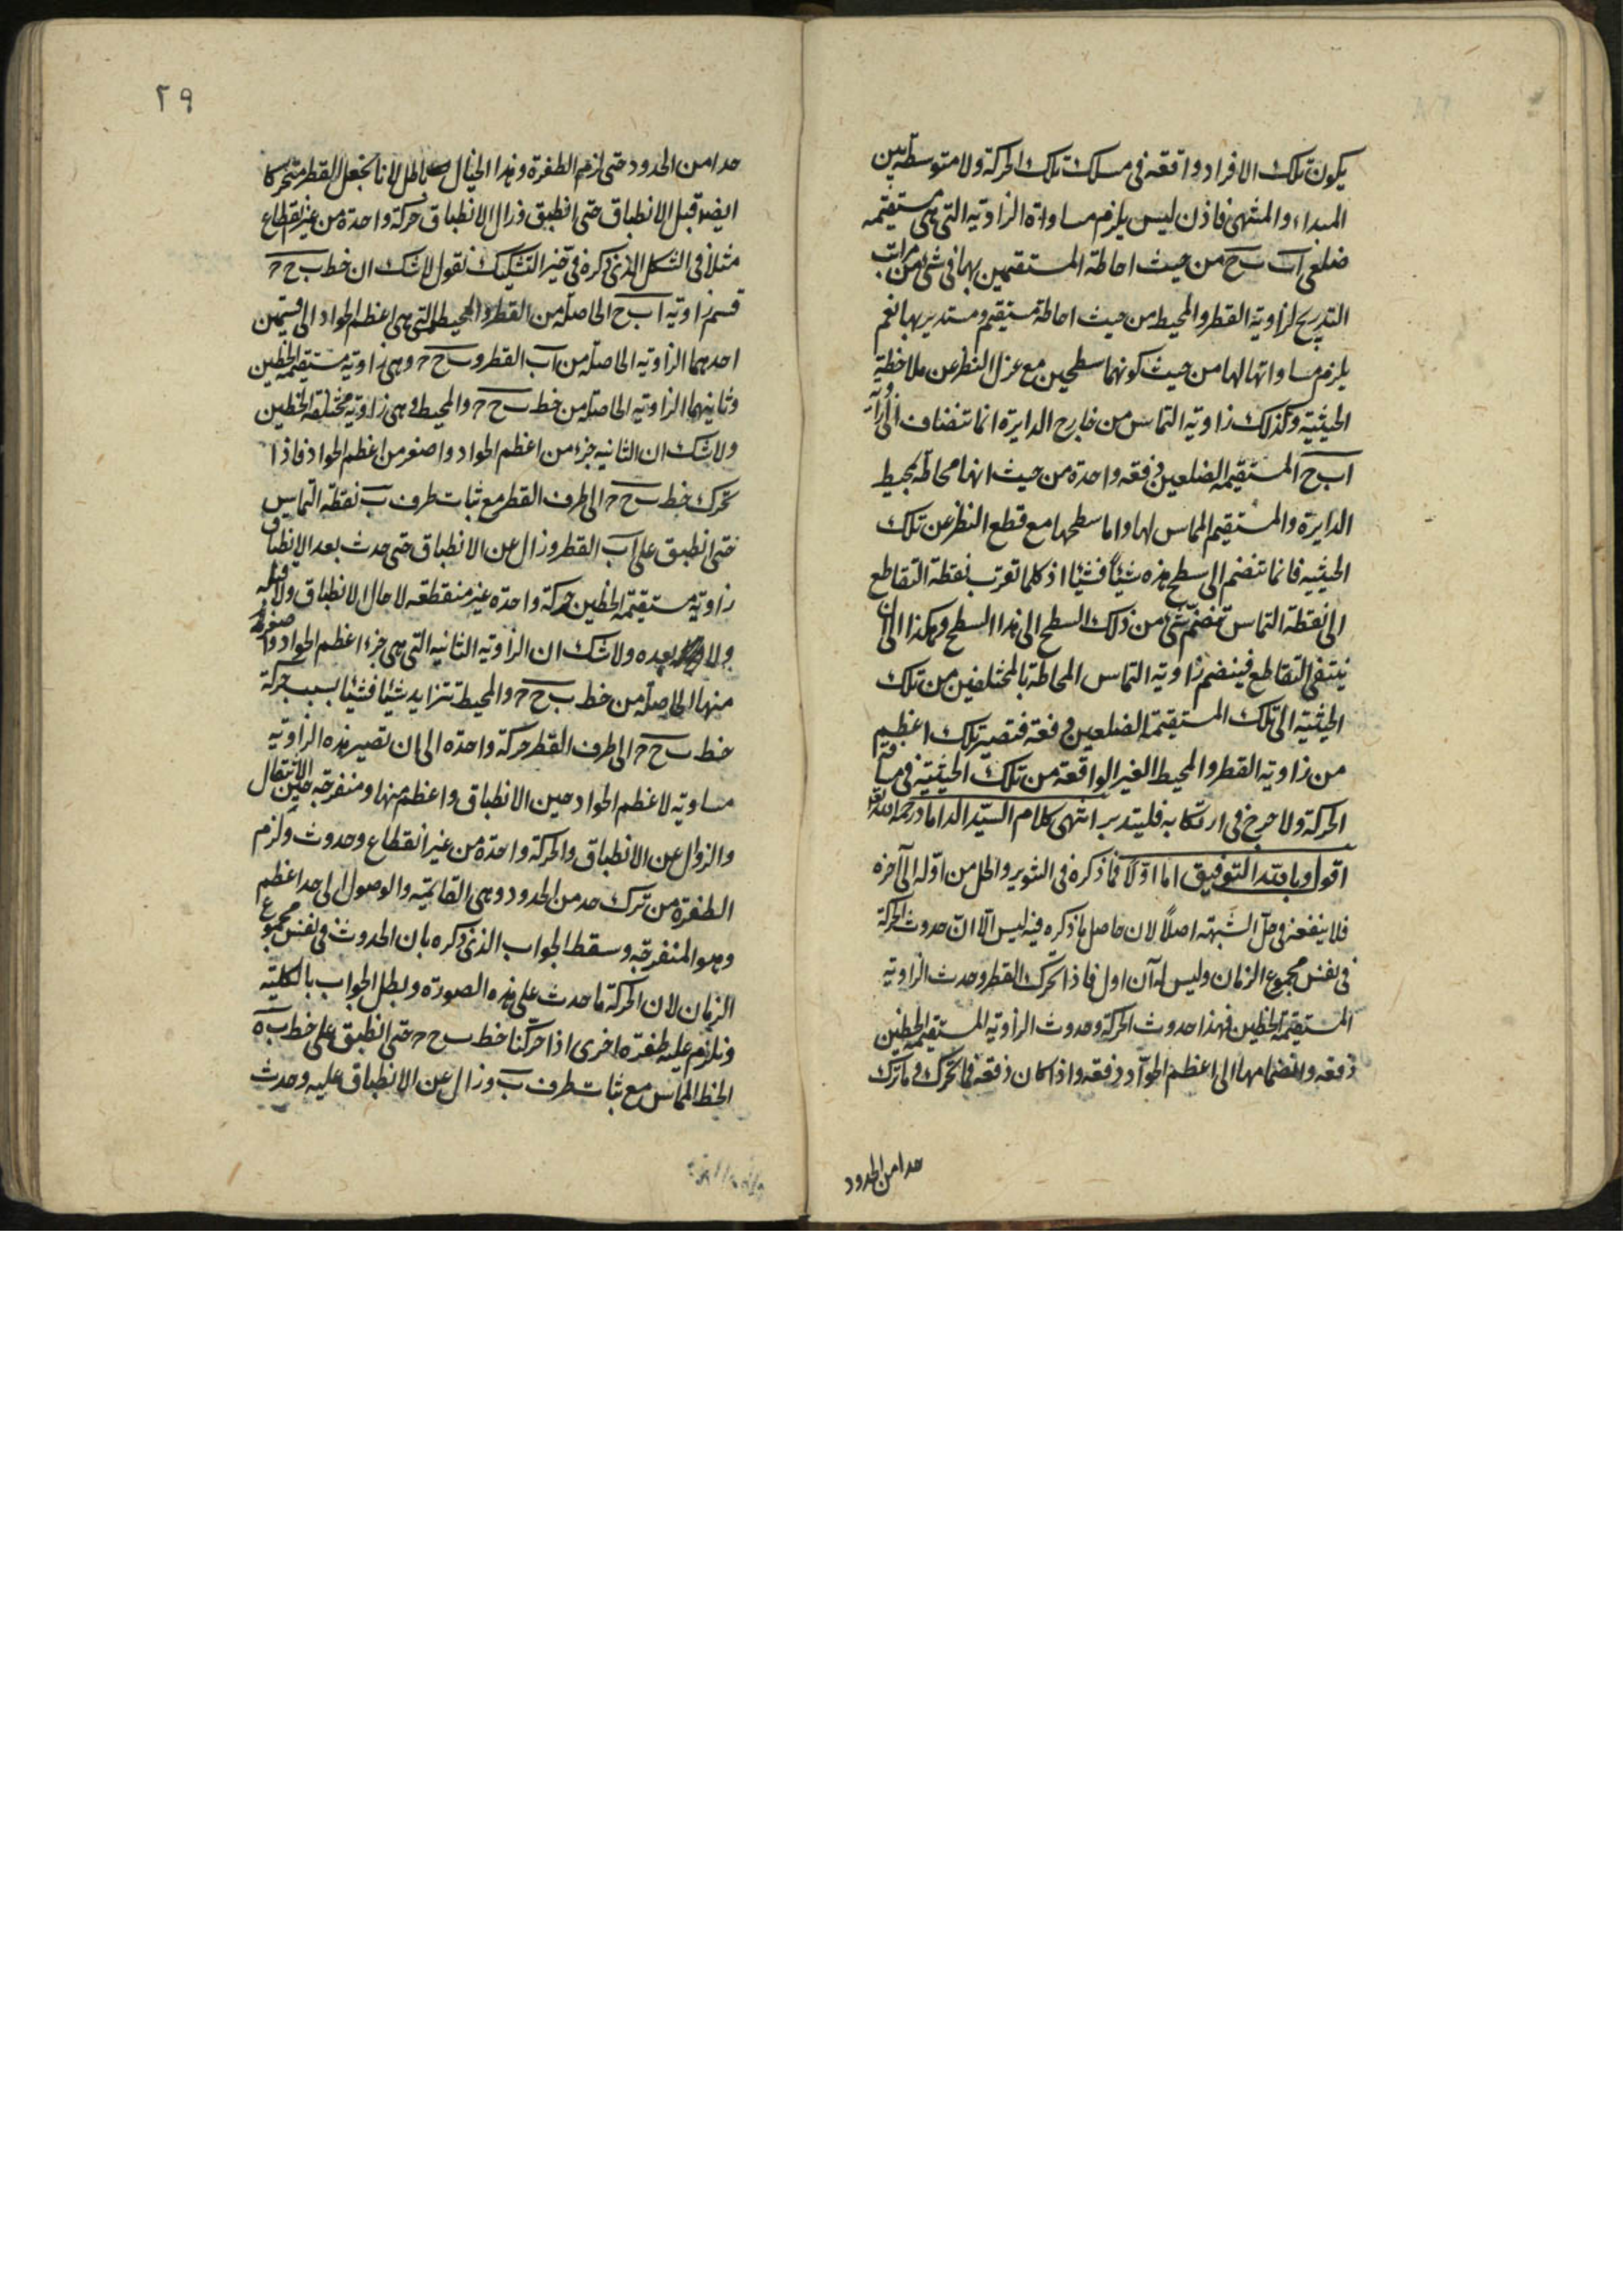 يكون تلك الافراد واقعة فى مسلك تلك الحركة ولا متوسطة بين
المبداء والمنتهى فاذن ليس يلزم مساواة الزاوية التى هى مستقيمة
ضلعى اب ب ح من حيث احاطة المستقيمين بها فى شئ من مراتب
التدريج لزاوية القطر والمحيط من حيث احاطة مستقيم ومستدير بها نعم
يلزم مساواتها لها من حيث كونهما سطحين مع عزل النظر عن ملاحظة
الحيثية وكذلك زاوية التماس من خارج الدايرة انما تنضاف الى زاوية
اب ح المستقيمة الضلعين دفعة واحدة من حيث انها محاطة بمحيط
الدايرة والمستقيم المماس لها واما سطحها مع قطع النظر عن تلك
الحيثية فانما تنضم الى سطح هذه شيئاً فشيئا اذ كلما تقرب نقطة التقاطع
الى نقطة التماس تنضم شئ من ذلك السطح الى هذا السطح وهكذا الى ان
ينتفى التقاطع فينضم زاوية التماس المحاطة بالمختلفين من تلك
الحيثية الى تلك المستقيمة الضلعين دفعة فتصير تلك اعظم
من زاوية القطر والمحيط الغير الواقعة من تلك الحيثية فى مسافة
الحركة ولا حرج فى ارتكابه فليتدبر انتهى كلام السيد الداماد رحمه الله
اقول وبالله التوفيق اما اولا فما ذكره فى التنوير والحل من اوله الى آخره
فلا ينفعه فى حل الشبهة اصلاً لان حاصل ما ذكره فيه ليس الا ان حدوث الحركة
فى نفس مجموع الزمان وليس له آن اول فاذا تحرك القطر وحدث الزاوية
المستقيمة الخطين فهذا حدوث الحركة وحدوث الزاوية المستقيمة الخطين
دفعة وانضمامها الى اعظم الحواد دفعة واذا كان دفعة فالمتحرك ما ترك
حدا من الحدود
٢٩
حدا من الحدود حتى لزم الطفرة وهذا الخيال باطل لانا نجعل القطر متحركا
ايضا قبل الانطباق حتى انطبق وزال الانطباق حركة واحدة من غير انقطاع
مثلا فى الشكل الذى ذكره فى حيز التشكيك نقول لا شك ان خط ب ح ر
قسم زاوية اب ح الحاصلة من القطر والمحيط التى هى اعظم الحواد الى قسمين
احدهما الزاوية الحاصلة من اب القطر و ب ح ر وهى زاوية مستقيمة الخطين
وثانيهما الزاوية الحاصلة من خط ب ح ر والمحيط وهى زاوية مختلفة الخطين
ولا شك ان الثانية جزء من اعظم الحواد واصغر من اعظم الحواد فاذا
تحرك خط ب ح ر الى طرف القطر مع ثبات طرف ب نقطة التماس
حتى انطبق على اب القطر وزال عن الانطباق حتى حدث بعد الانطباق
زاوية مستقيمة الخطين حركة واحدة غير منقطعة لا حال الانطباق ولا قبله
ولا بعده ولا شك ان الزاوية الثانية التى هى جزء اعظم الحواد واصغر
منها الحاصلة من خط ب ح ر والمحيط تتزايد شيئا فشيئا بسبب حركة
خط ب ح ر الى طرف القطر حركة واحدة الى ان تصير هذه الزاوية
مساوية لاعظم الحواد حين الانطباق واعظم منها ومنفرجة حين الانتقال
والزوال عن الانطباق والحركة واحدة من غير انقطاع وحدوث ولزم
الطفرة من ترك حد من الحدود وهى القائمة والوصول الى حد اعظم
وهو المنفرجة وسقط الجواب الذى ذكره بان الحدوث فى نفس مجموع
الزمان لان الحركة ما حدث على هذه الصورة وبطل الجواب بالكلية
ونلزم عليه طفرة اخرى اذا حركنا خط ب ح ر حتى انطبق على خط ب ه
الخط المماس مع ثبات طرف ب وزال عن الانطباق عليه وحدث